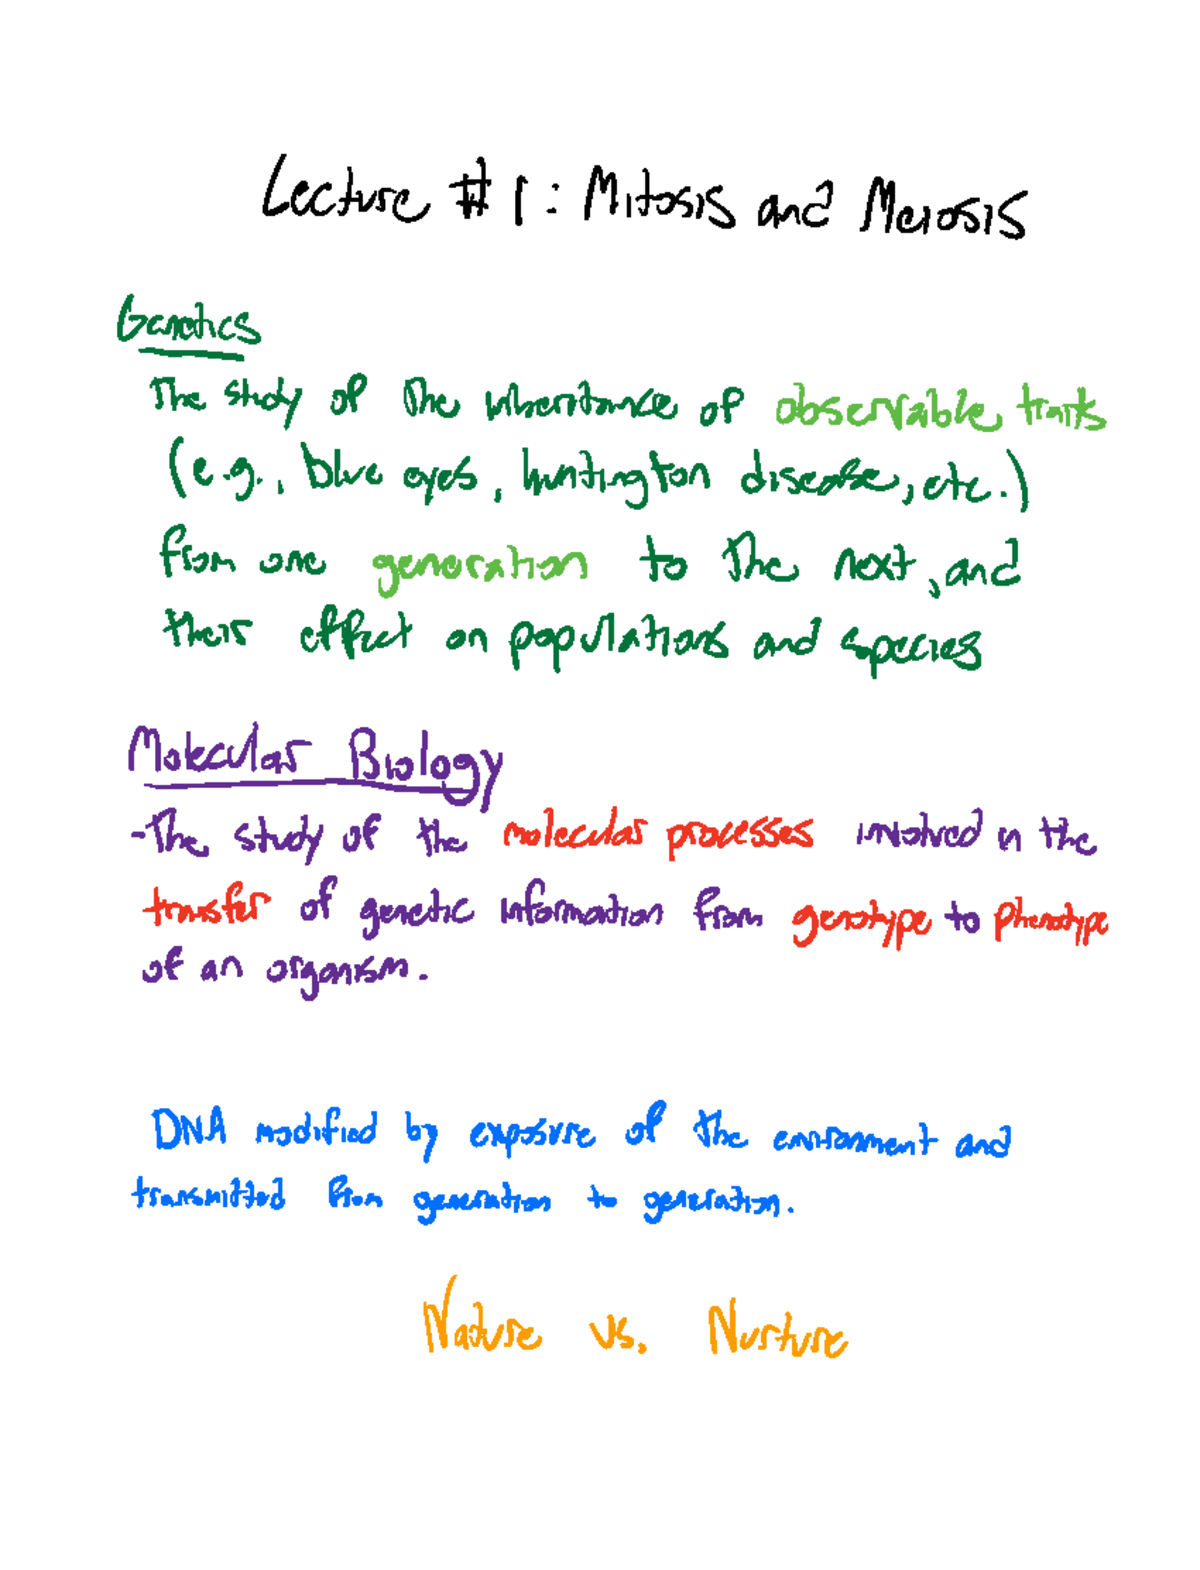 Lecture #1: Mitosis and Meiosis
Genetics
The study of the inheritance of observable traits
(e.g., blue eyes, huntington disease, etc.)
from one generation to the next, and
their effect on populations and species
Molecular Biology
-The study of the molecular processes involved in the
transfer of genetic information from genotype to phenotype
of an organism.
DNA modified by exposure of the environment and
transmitted from generation to generation.
Nature vs. Nurture